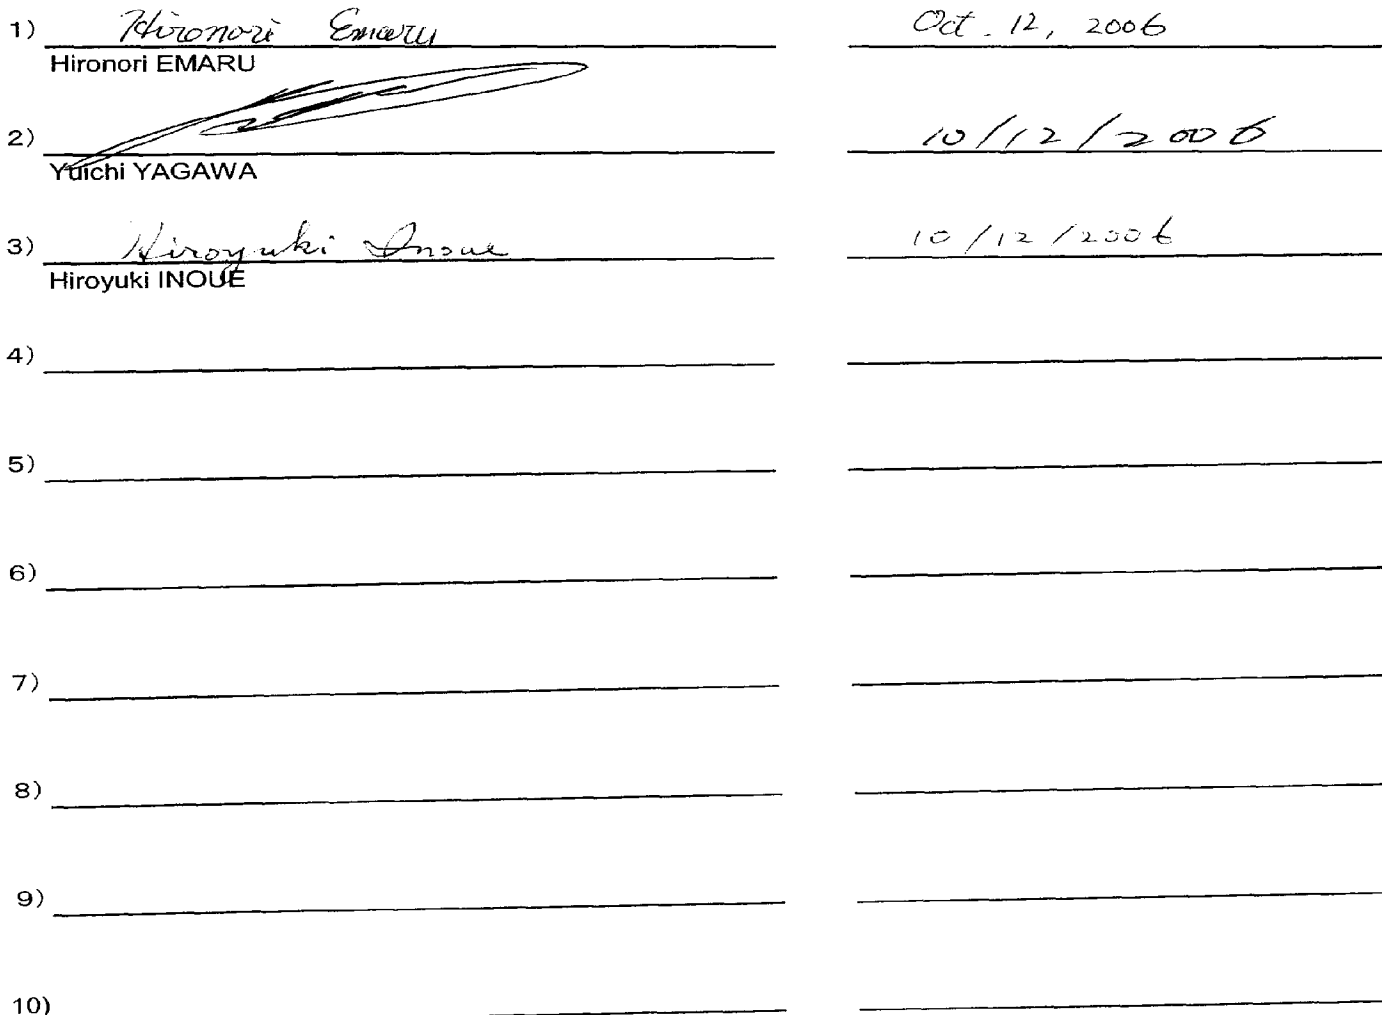 1) Hironori Emaru Oct. 12, 2006
Hironori EMARU
2) 10/12/2006
Yuichi YAGAWA
3) Hiroyuki Inoue 10/12/2006
Hiroyuki INOUE
4)
5)
6)
7)
8)
9)
10)